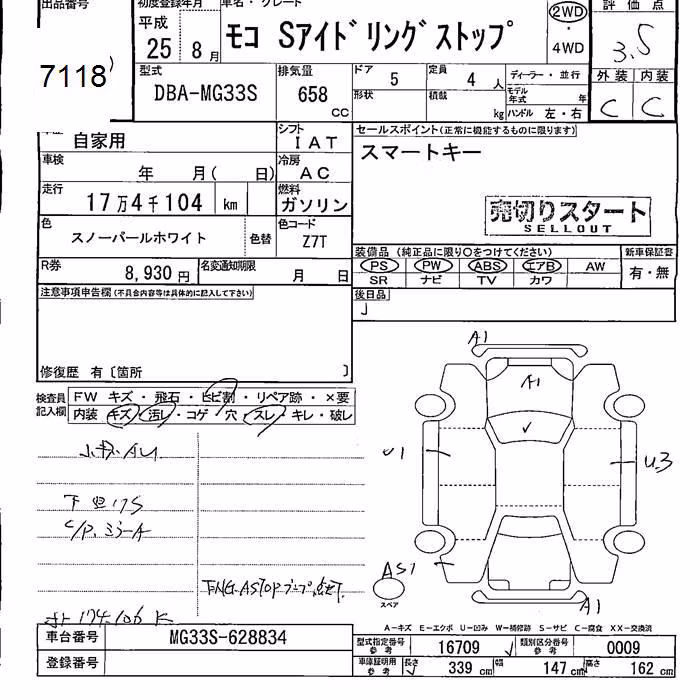 出品番号
7118
初度登録年月
平成
25年 8月
車名・グレード
モコ Sアイドリングストップ
2WD
・
4WD
評価点
3.5
外装 内装
C C
型式
DBA-MG33S
排気量
658
cc
ドア 5
形状
定員 4 人
積載 kg
ディーラー・並行
モデル年式 年
ハンドル 左・右
自家用
シフト
IAT
車検
年 月( 日)
冷房
AC
走行
17万4千104 km
燃料
ガソリン
色
スノーパールホワイト
色替
色コード
Z7T
R券
8,930円
名変通知期限
月 日
セールスポイント(正常に機能するものに限ります)
スマートキー
売切りスタート
SELLOUT
装備品(純正品に限り〇をつけてください)
PS PW ABS エアB AW
SR ナビ TV カワ
新車保証書
有・無
後日品
注意事項申告欄(不具合内容等は具体的に記入して下さい)
修復歴 有〔箇所 〕
検査員記入欄
FW キズ・飛石・ヒビ割・リペア跡・×要
内装 キズ・汚レ・コゲ・穴・スレ・キレ・破レ
小キズ.AU
下回りS
C/P.ミラーA
ENG.ASTOPランプ点灯.
174.106 K
A1
A1
U1
U3
AS1
A1
スペア
A-キズ E-エクボ U-凹み W-補修跡 S-サビ C-腐食 XX-交換済
車台番号 MG33S-628834
登録番号
型式指定番号 参考 16709
類別区分番号 参考 0009
車庫証明用 参考 長さ 339 cm 幅 147 cm 高さ 162 cm